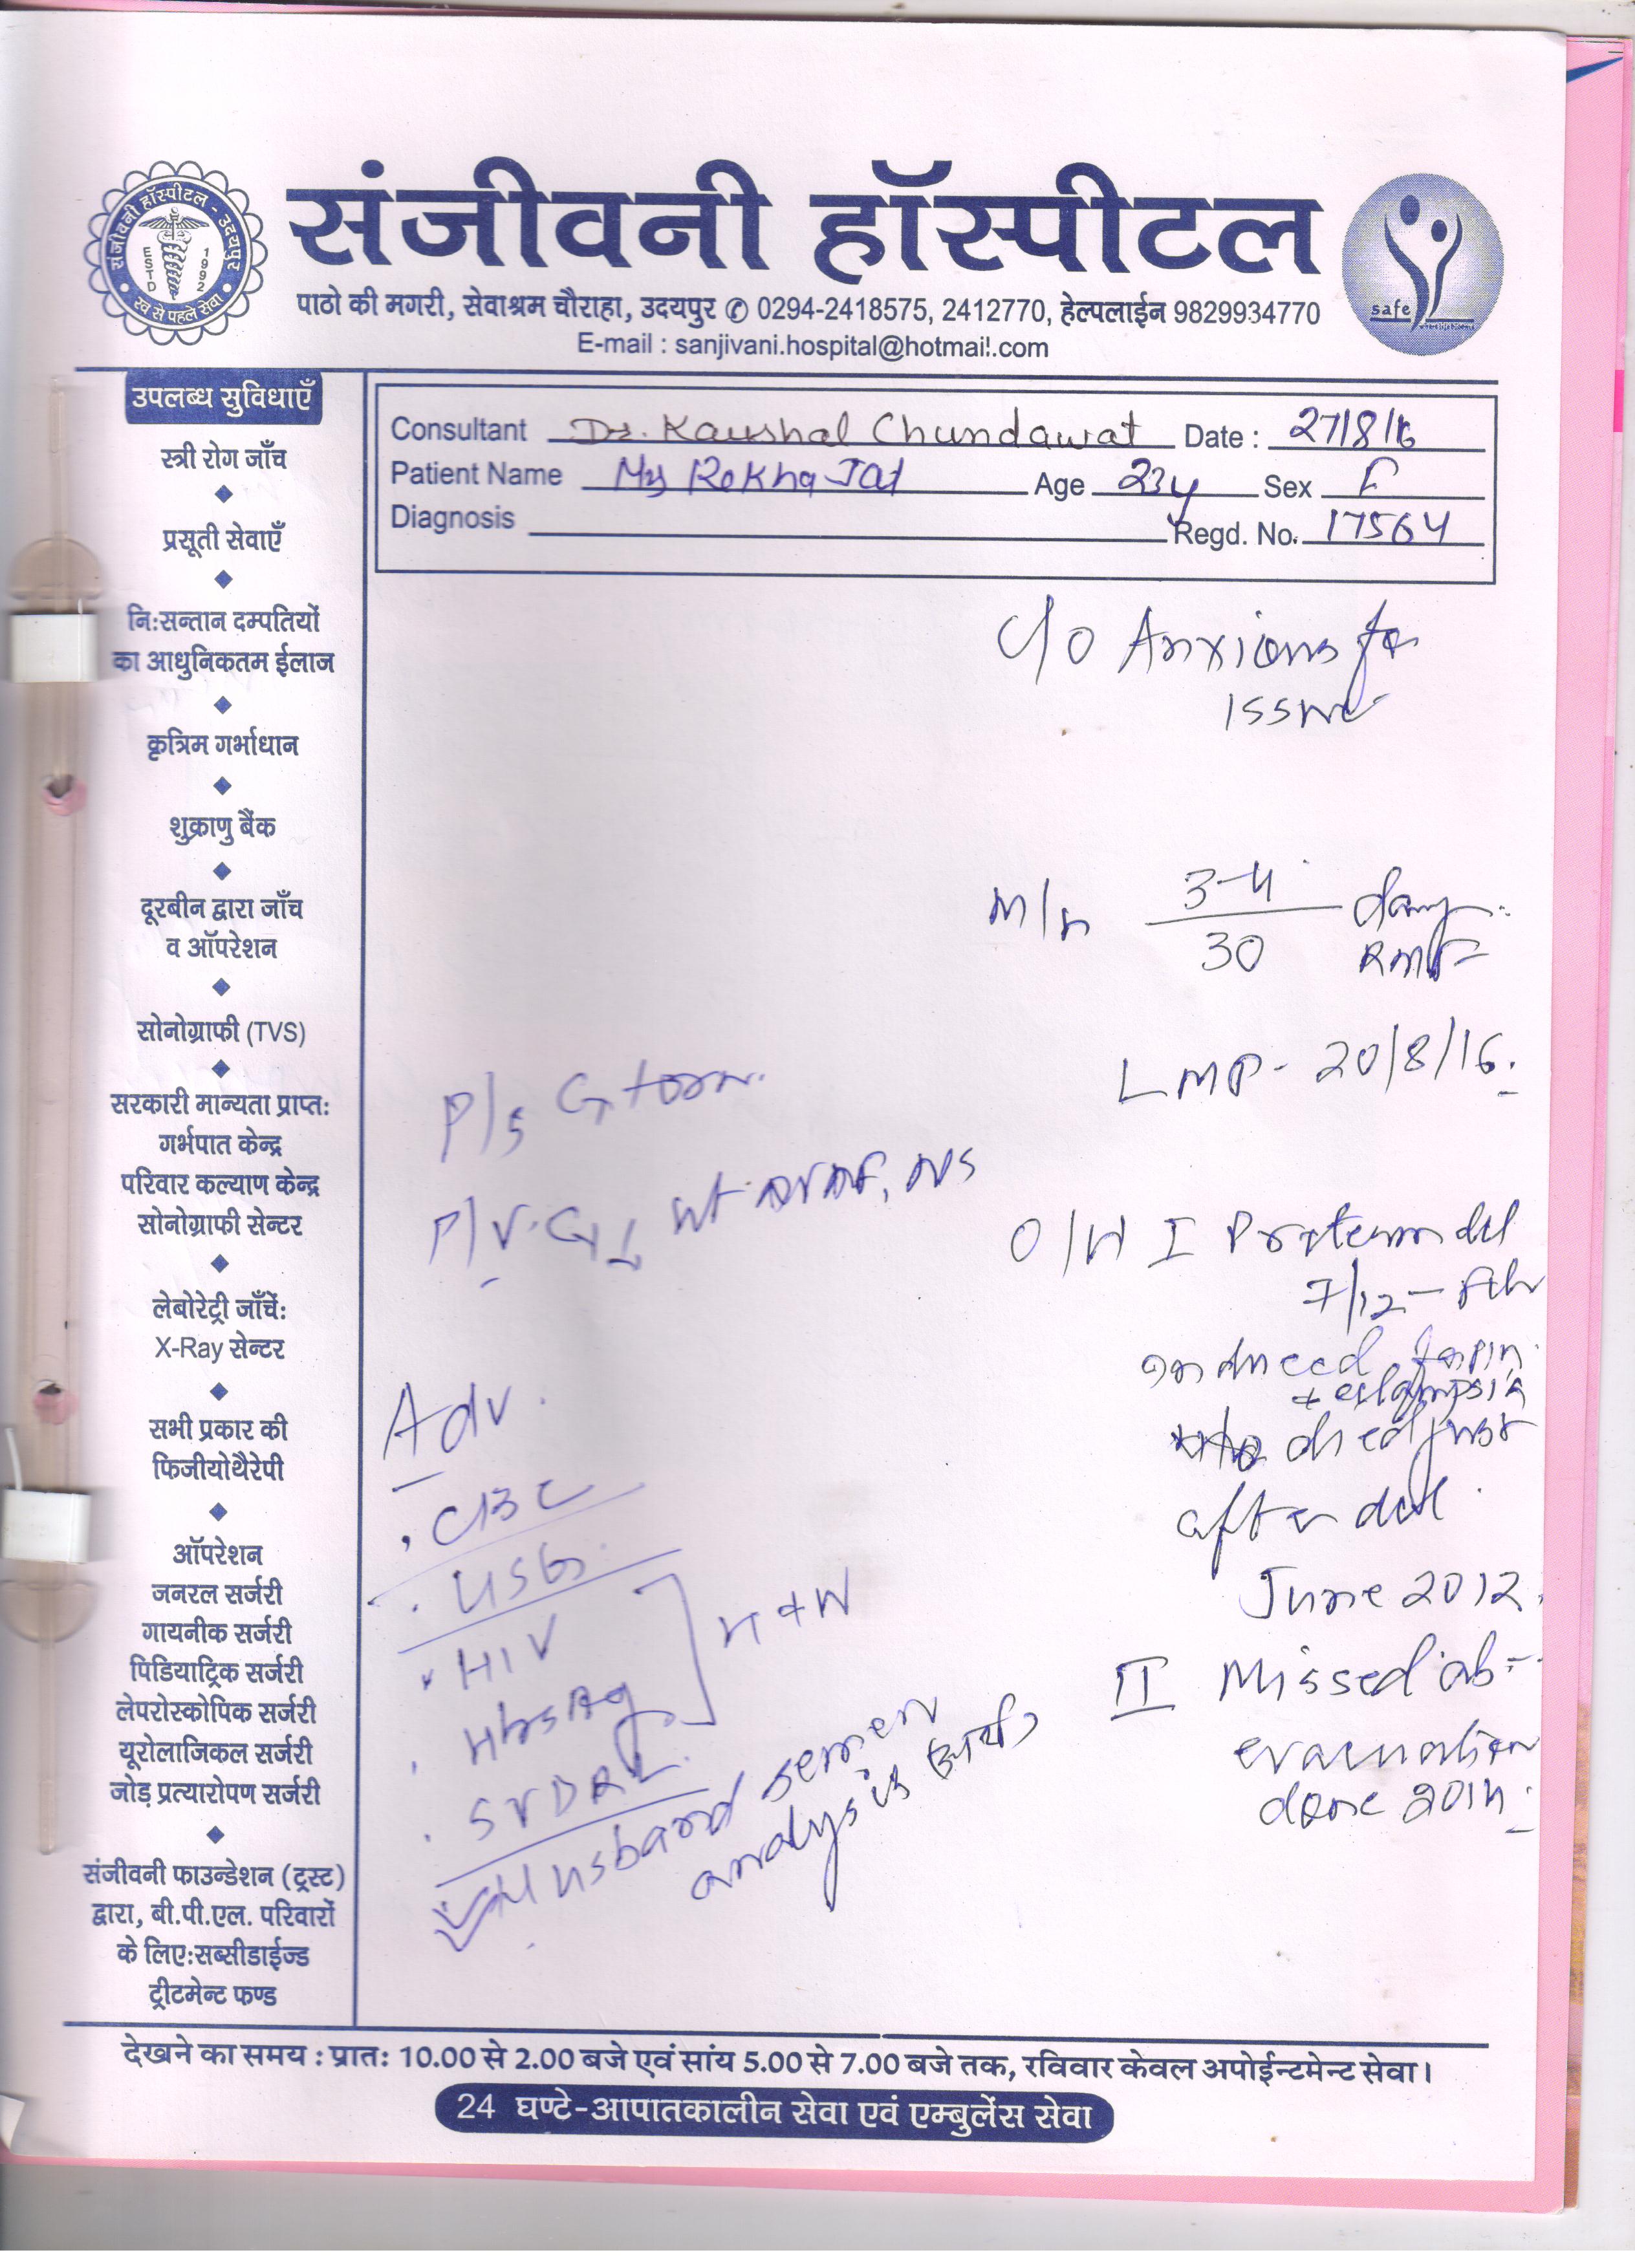 संजीवनी हॉस्पीटल - उदयपुर
ESTD 1992
स्व से पहले सेवा
संजीवनी हॉस्पीटल
safe
पाठो की मगरी, सेवाश्रम चौराहा, उदयपुर ✆ 0294-2418575, 2412770, हेल्पलाईन 9829934770
E-mail : sanjivani.hospital@hotmail.com
उपलब्ध सुविधाएँ
स्त्री रोग जाँच
प्रसूती सेवाएँ
नि:सन्तान दम्पतियों
का आधुनिकतम ईलाज
कृत्रिम गर्भाधान
शुक्राणु बैंक
दूरबीन द्वारा जाँच
व ऑपरेशन
सोनोग्राफी (TVS)
सरकारी मान्यता प्राप्त:
गर्भपात केन्द्र
परिवार कल्याण केन्द्र
सोनोग्राफी सेन्टर
लेबोरेट्री जाँचें:
X-Ray सेन्टर
सभी प्रकार की
फिजीयोथैरेपी
ऑपरेशन
जनरल सर्जरी
गायनीक सर्जरी
पिडियाट्रिक सर्जरी
लेपरोस्कोपिक सर्जरी
यूरोलाजिकल सर्जरी
जोड़ प्रत्यारोपण सर्जरी
संजीवनी फाउन्डेशन (ट्रस्ट)
द्वारा, बी.पी.एल. परिवारों
के लिए:सब्सीडाईज्ड
ट्रीटमेन्ट फण्ड
Consultant Dr. Kaushal Chundawat Date : 27/8/16
Patient Name Mrs Rekha Jat Age 23y Sex F
Diagnosis Regd. No. 17564
C/O Anxious for
issue
M/H 3-4/30 days
LMP - 20/8/16.
P/S
P/V
O/H I Preterm del
7/12 -
induced
+ eclampsia
died just
after del.
June 2012.
II Missed ab -
evacuation
done 2014.
Adv.
. CBC
. USG.
. HIV
. HbsAg ] H + W
. SVDRL.
Husband semen
analysis
देखने का समय : प्रात: 10.00 से 2.00 बजे एवं सांय 5.00 से 7.00 बजे तक, रविवार केवल अपोईन्टमेन्ट सेवा।
24 घण्टे-आपातकालीन सेवा एवं एम्बुलेंस सेवा